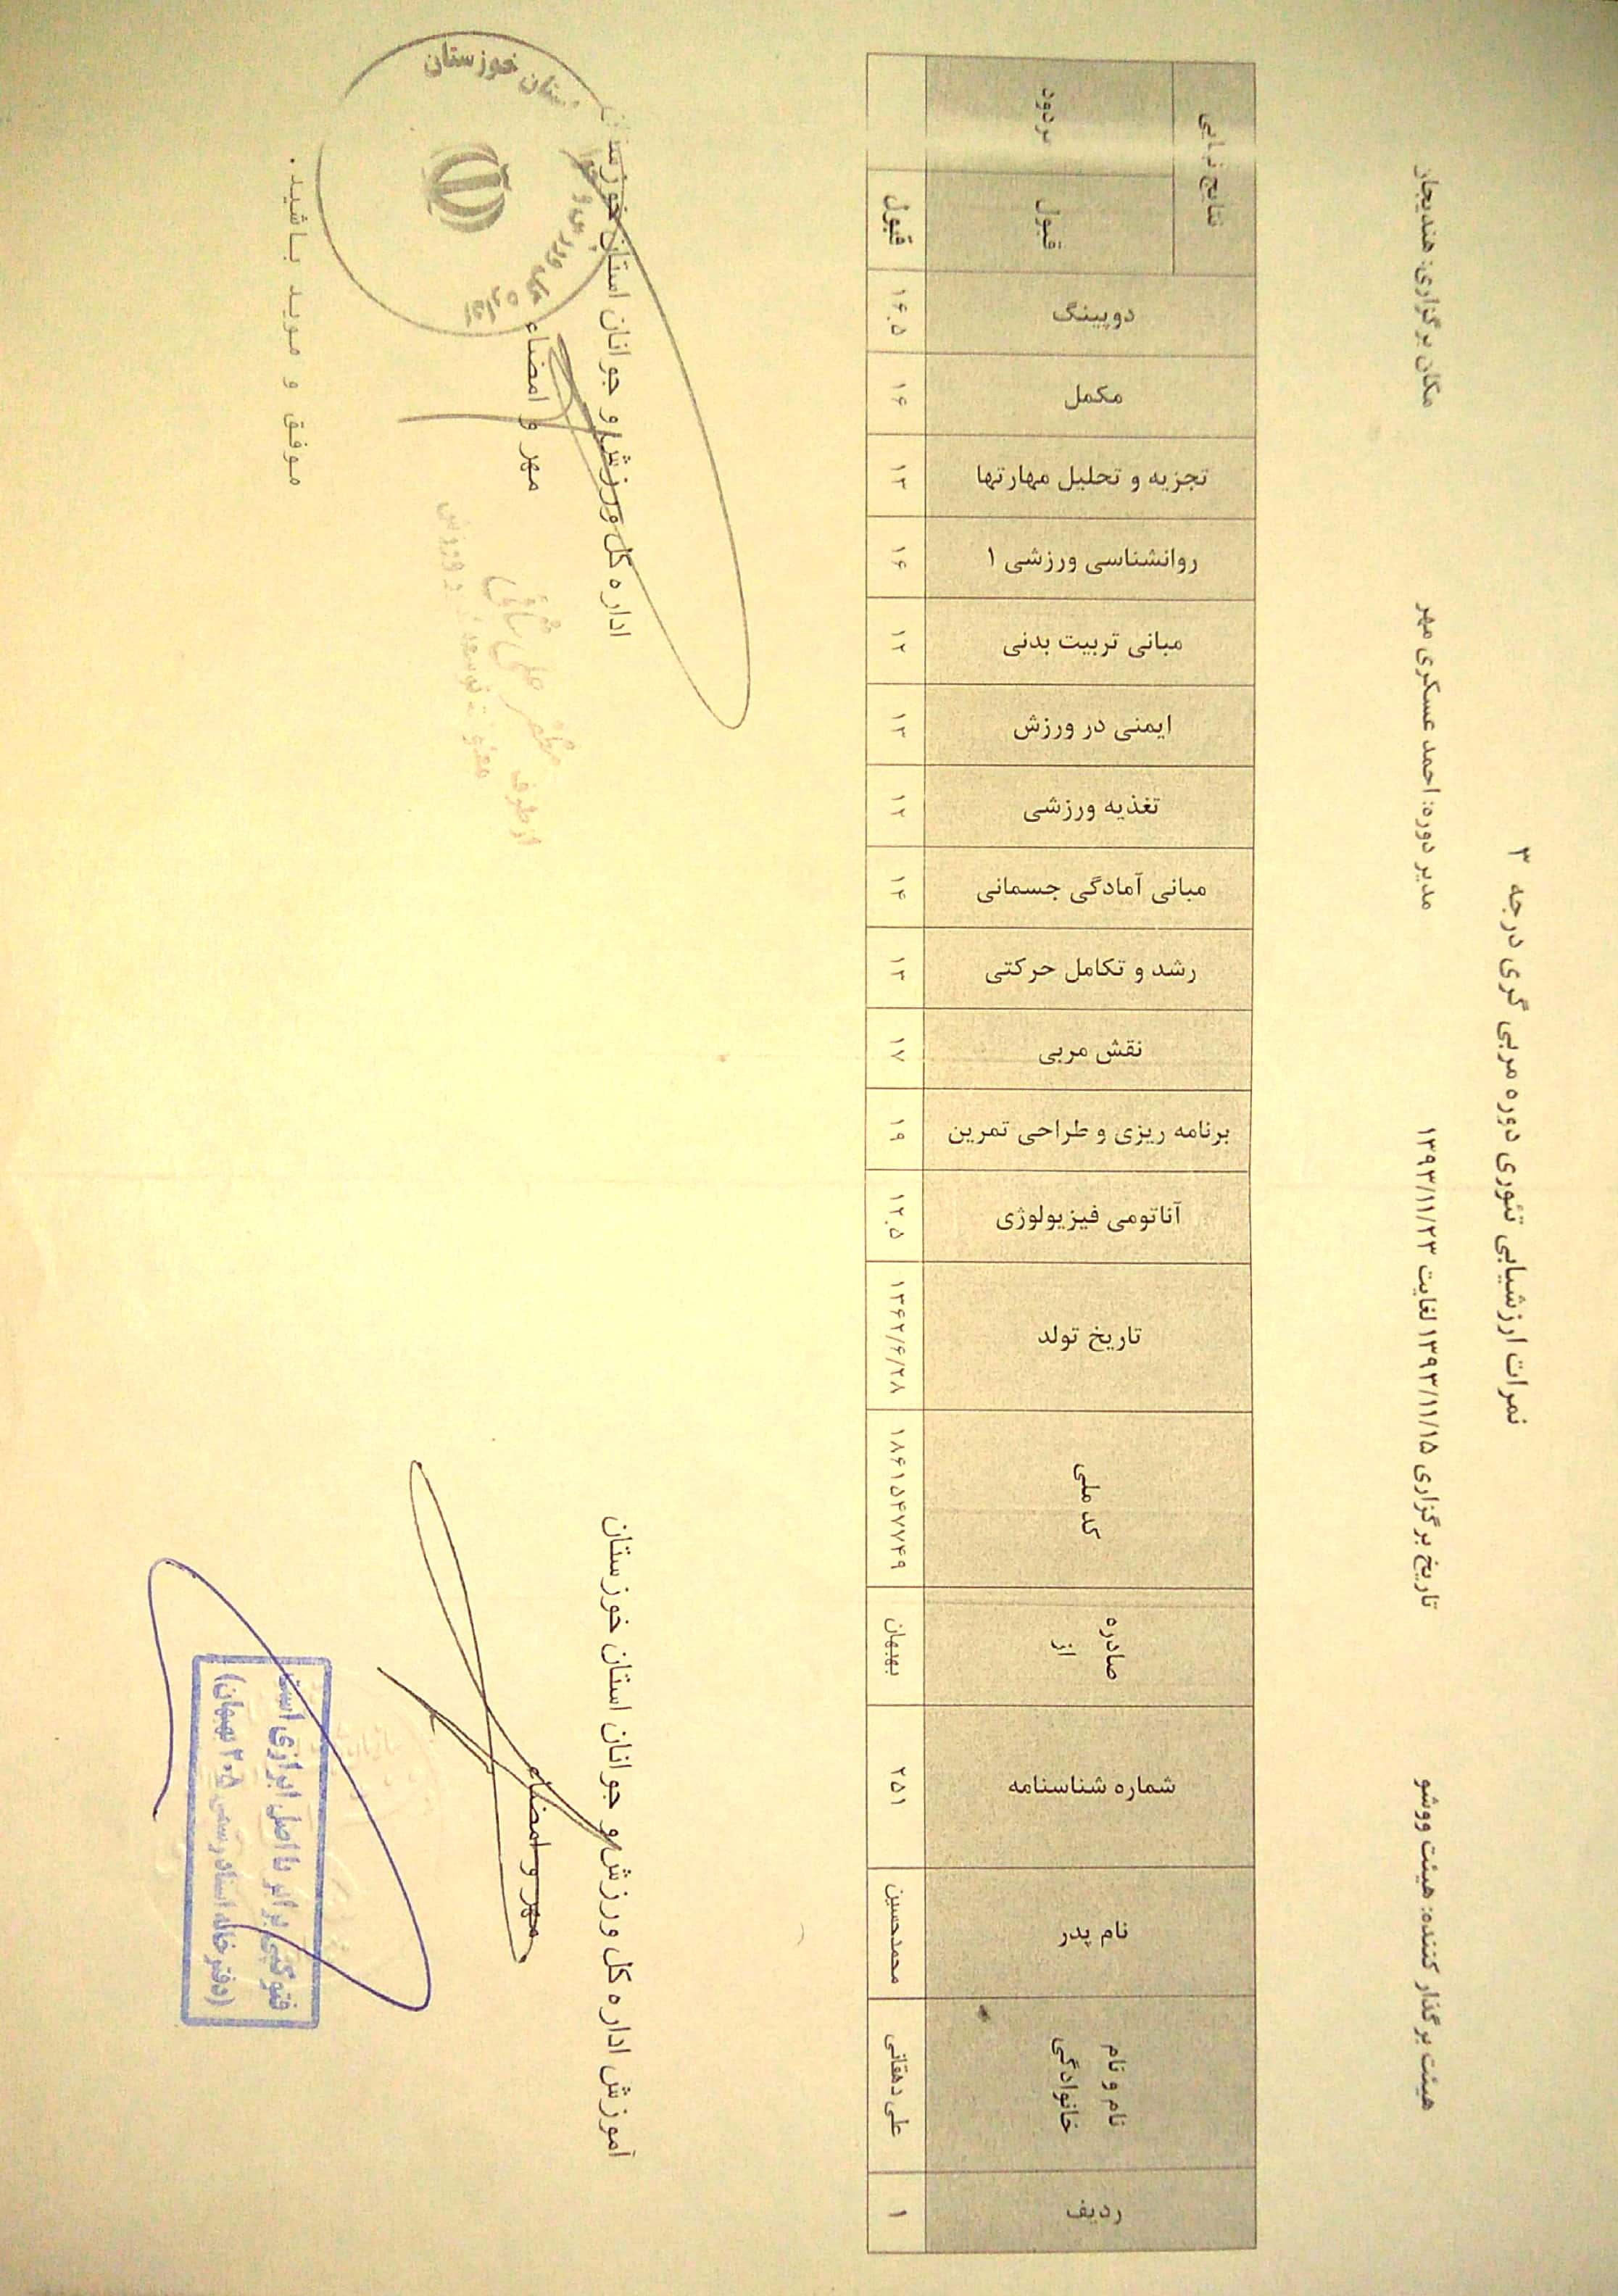 نمرات ارزشیابی تئوری دوره مربی گری درجه ۳
هیئت برگذار کننده: هیئت ووشو تاریخ برگزاری ۱۳۹۳/۱۱/۱۵ لغایت ۱۳۹۳/۱۱/۲۳ مدیر دوره: احمد عسکری مهر مکان برگزاری: هندیجان
ردیف
نام و نام
خانوادگی
نام پدر
شماره شناسنامه
صادره
از
کد ملی
تاریخ تولد
آناتومی فیزیولوژی
برنامه ریزی و طراحی تمرین
نقش مربی
رشد و تکامل حرکتی
مبانی آمادگی جسمانی
تغذیه ورزشی
ایمنی در ورزش
مبانی تربیت بدنی
روانشناسی ورزشی ۱
تجزیه و تحلیل مهارتها
مکمل
دوپینگ
نتایج نهایی
قبول
مردود
۱ علی دهقانی محمدحسین ۲۵۱ بهبهان ۱۸۶۱۵۴۷۷۴۹ ۱۳۶۲/۶/۲۸ ۱۲.۵ ۱۹ ۱۷ ۱۳ ۱۴ ۱۲ ۱۳ ۱۲ ۱۶ ۱۳ ۱۶ ۱۶.۵ قبول
آموزش اداره کل ورزش و جوانان استان خوزستان
مهر و امضاء
اداره کل ورزش و جوانان استان خوزستان
مهر و امضاء
از طرف
موفق و موید باشید.
فتوکپی برابر با اصل ابرازی است
(دفترخانه اسناد رسمی ۲۰۵ بهبهان)
اداره کل ورزش و جوانان استان خوزستان